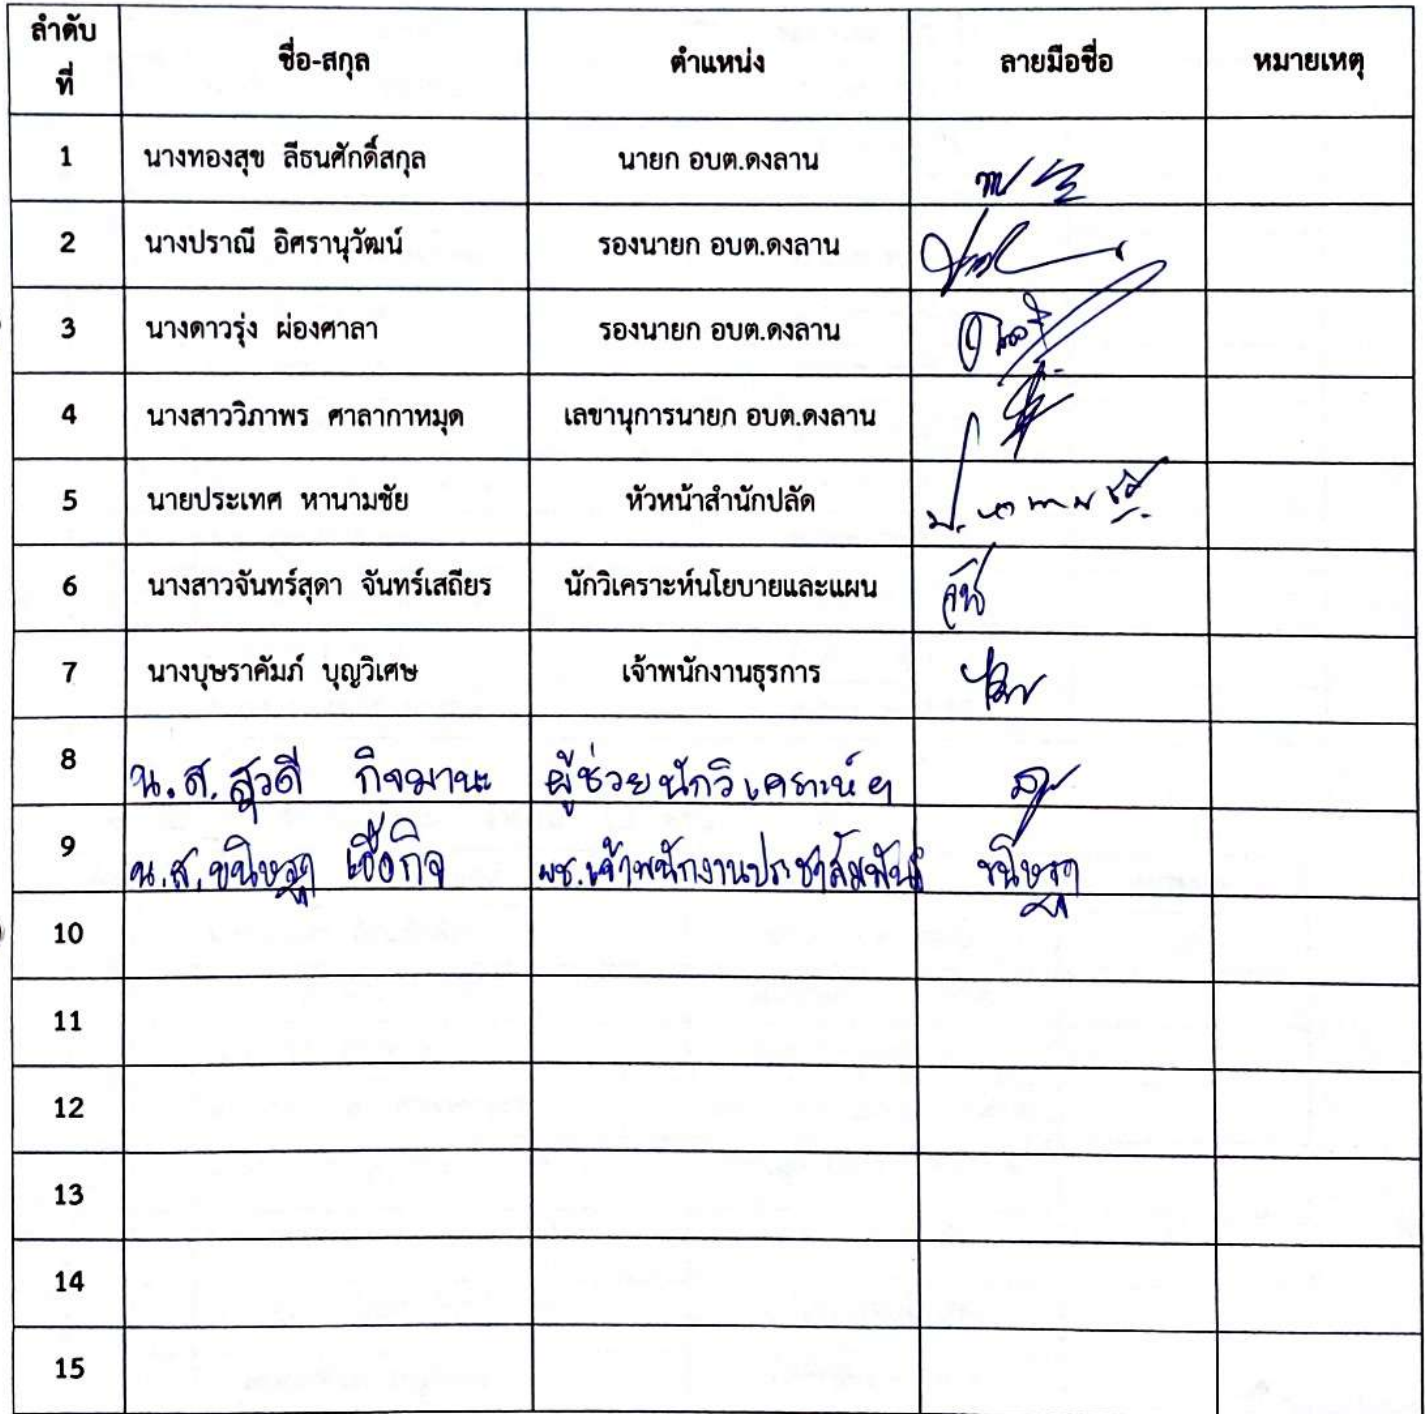 ลำดับที่ ชื่อ-สกุล ตำแหน่ง ลายมือชื่อ หมายเหตุ
1 นางทองสุข ลีธนศักดิ์สกุล นายก อบต.ดงลาน
2 นางปราณี อิศรานุวัฒน์ รองนายก อบต.ดงลาน
3 นางดาวรุ่ง ผ่องศาลา รองนายก อบต.ดงลาน
4 นางสาววิภาพร ศาลากาหมุด เลขานุการนายก อบต.ดงลาน
5 นายประเทศ หานามชัย หัวหน้าสำนักปลัด ป. หานามชัย
6 นางสาวจันทร์สุดา จันทร์เสถียร นักวิเคราะห์นโยบายและแผน
7 นางบุษราคัมภ์ บุญวิเศษ เจ้าพนักงานธุรการ
8 น.ส. สุวดี กิจมานะ ผู้ช่วยนักวิเคราะห์ฯ
9 น.ส. ขนิษฐา เชื้อกิจ ผช.เจ้าพนักงานประชาสัมพันธ์ ขนิษฐา
10
11
12
13
14
15